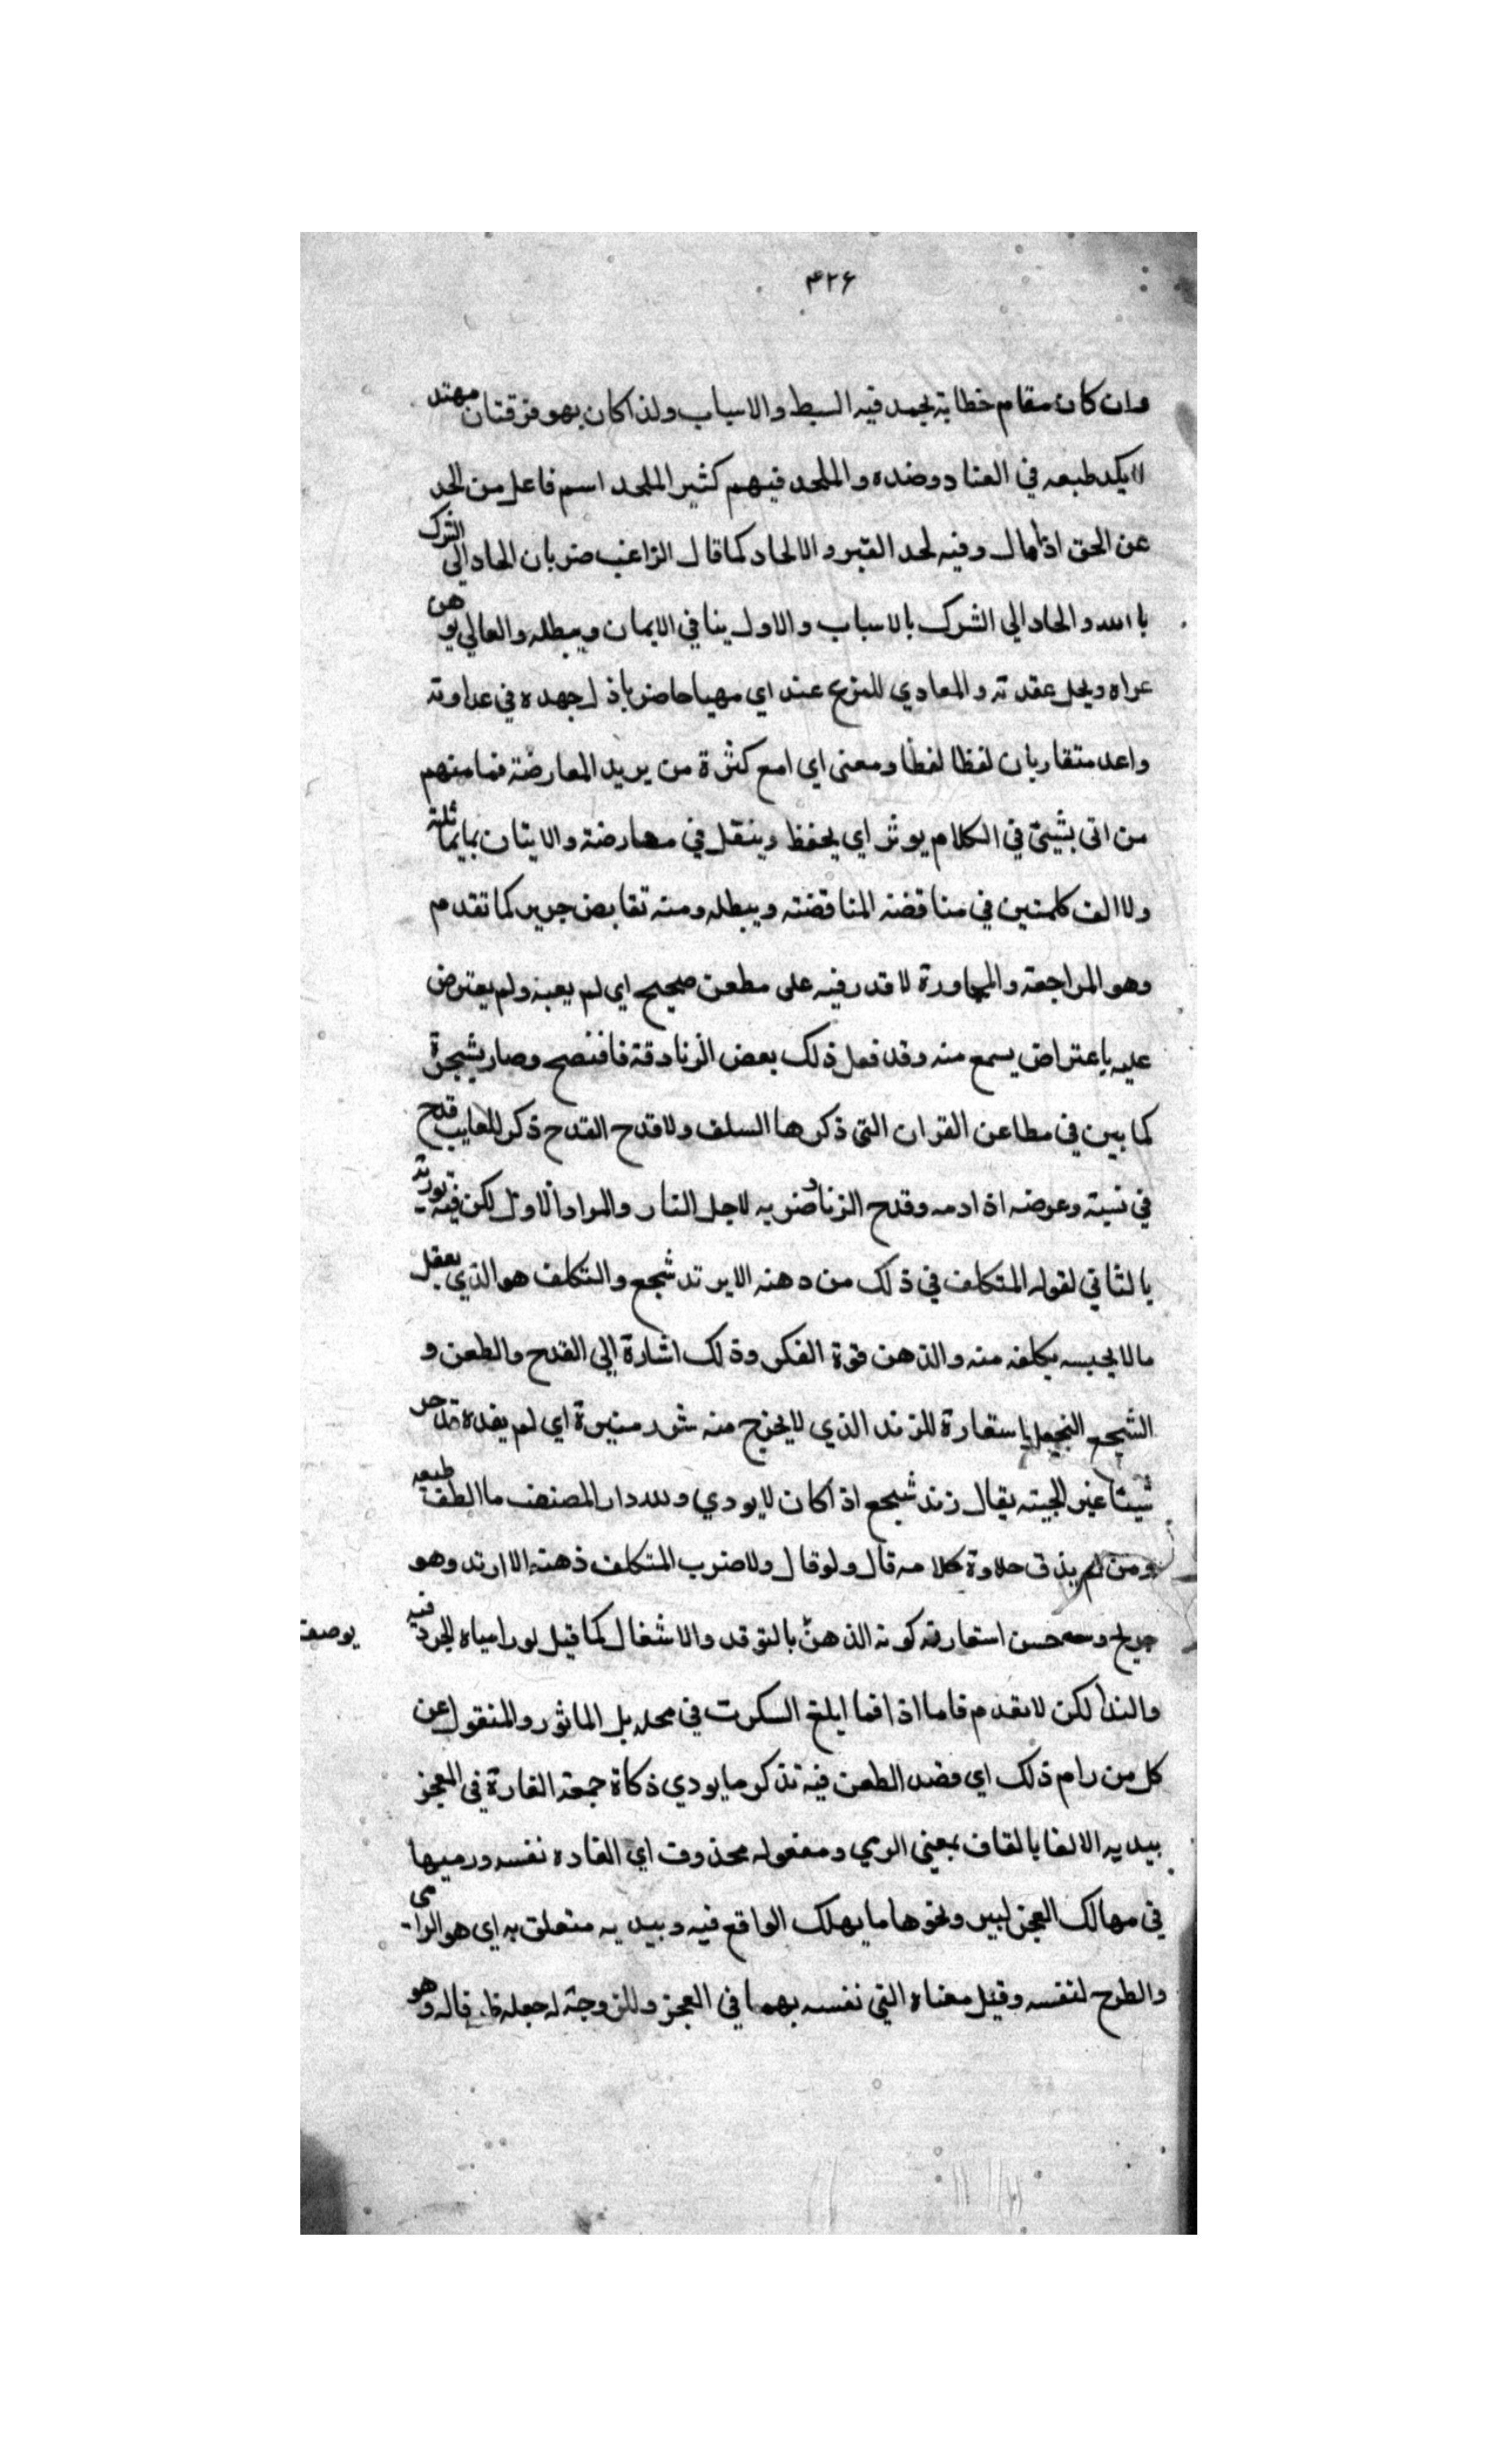 ۴۲۶
وان كان مقام خطابة يحمد فيه البسط والاسباب ولذا كان بهو فزقتان مهتد
لا يكد طبعه في العناد وضده والملحد فيهم كثير الملحد اسم فاعل من لحد
عن الحق اذا مال وفيه لحد القبر والالحاد كما قال الراغب ضربان الحاد الي الشرك
با الله والحاد الي الشرك بالاسباب والاول ينافي الايمان ويبطله والعالي يوهن
عراه ويحل عقدته والمعادي للشرع عند اي مهيا حاضر باذل جهده في عداوته
واعد متقاربان لفظا لفظا ومعنى اي امع كثرة من يريد المعارضة فما منهم
من اتى بشيئ في الكلام يوثر اي يحفظ وينقل في معارضة والايتان بما يماثله
ولا الف كلمتين في مناقضة المناقضته ويبطله ومنه تقايض جرير كما تقدم
وهو المراجعة والمحاورة لا قدر فيه على مطعن صحيح اي لم يعبه ولم يعترض
عليه باعتراض يسمع منه وقد فعل ذلك بعض الزنادقة فافتضح وصار
كما بين في مطاعن القران التي ذكرها السلف ولا قدح القدح ذكر المعايب قدح
في نسبته وعرضه اذ ادمه وقدح الزناد ضربه لاجل النار والمراد الاول لكن فيه تورية
بالثاني لقوله المتكلف في ذلك من دهنه الا بزند شجع والتكلف هو الذي يعقل
ما لا يحبسه بكلفه منه والذهن قوة الفكر وذلك اشارة الي القدح والطعن و
الشجع البخيل باستعارة للزند الذي لا يخرج منه شرر منيرة اي لم يفده قدحه
شيئا غير الجيته يقال زند شجع اذا كان لا يودي ولله دار المصنف ما الطف طبعه
ومن لم يذق حلاوة كلامه قال ولو قال ولا ضرب المتكلف ذهنه الا ارتد وهو
جريح وسعه حسن استعارته كونه الذهن بالتوقد والاشغال كما قيل لورامياه الجرد فيه
يوصف
والندا لكن لا تقدم فاما اذا فما ابلغ السكرت في محله بل الماثور والمنقول عن
كل من رام ذلك اي قصد الطعن فيه تذكر ما يودي ذكاة جمعة القارة في العجز
بيديه الالقا بالقاف بمعني الرمي ومفعوله محذوف اي القاده نفسه ورميها
في مهالك العجز لبير ونحوها ما يهلك الواقع فيه وبيديه متعلق به اي هو الرامي
والطرح لنفسه وقيل معناه التي نفسه بهما في العجز وللزوجته له جعله قاله وهو